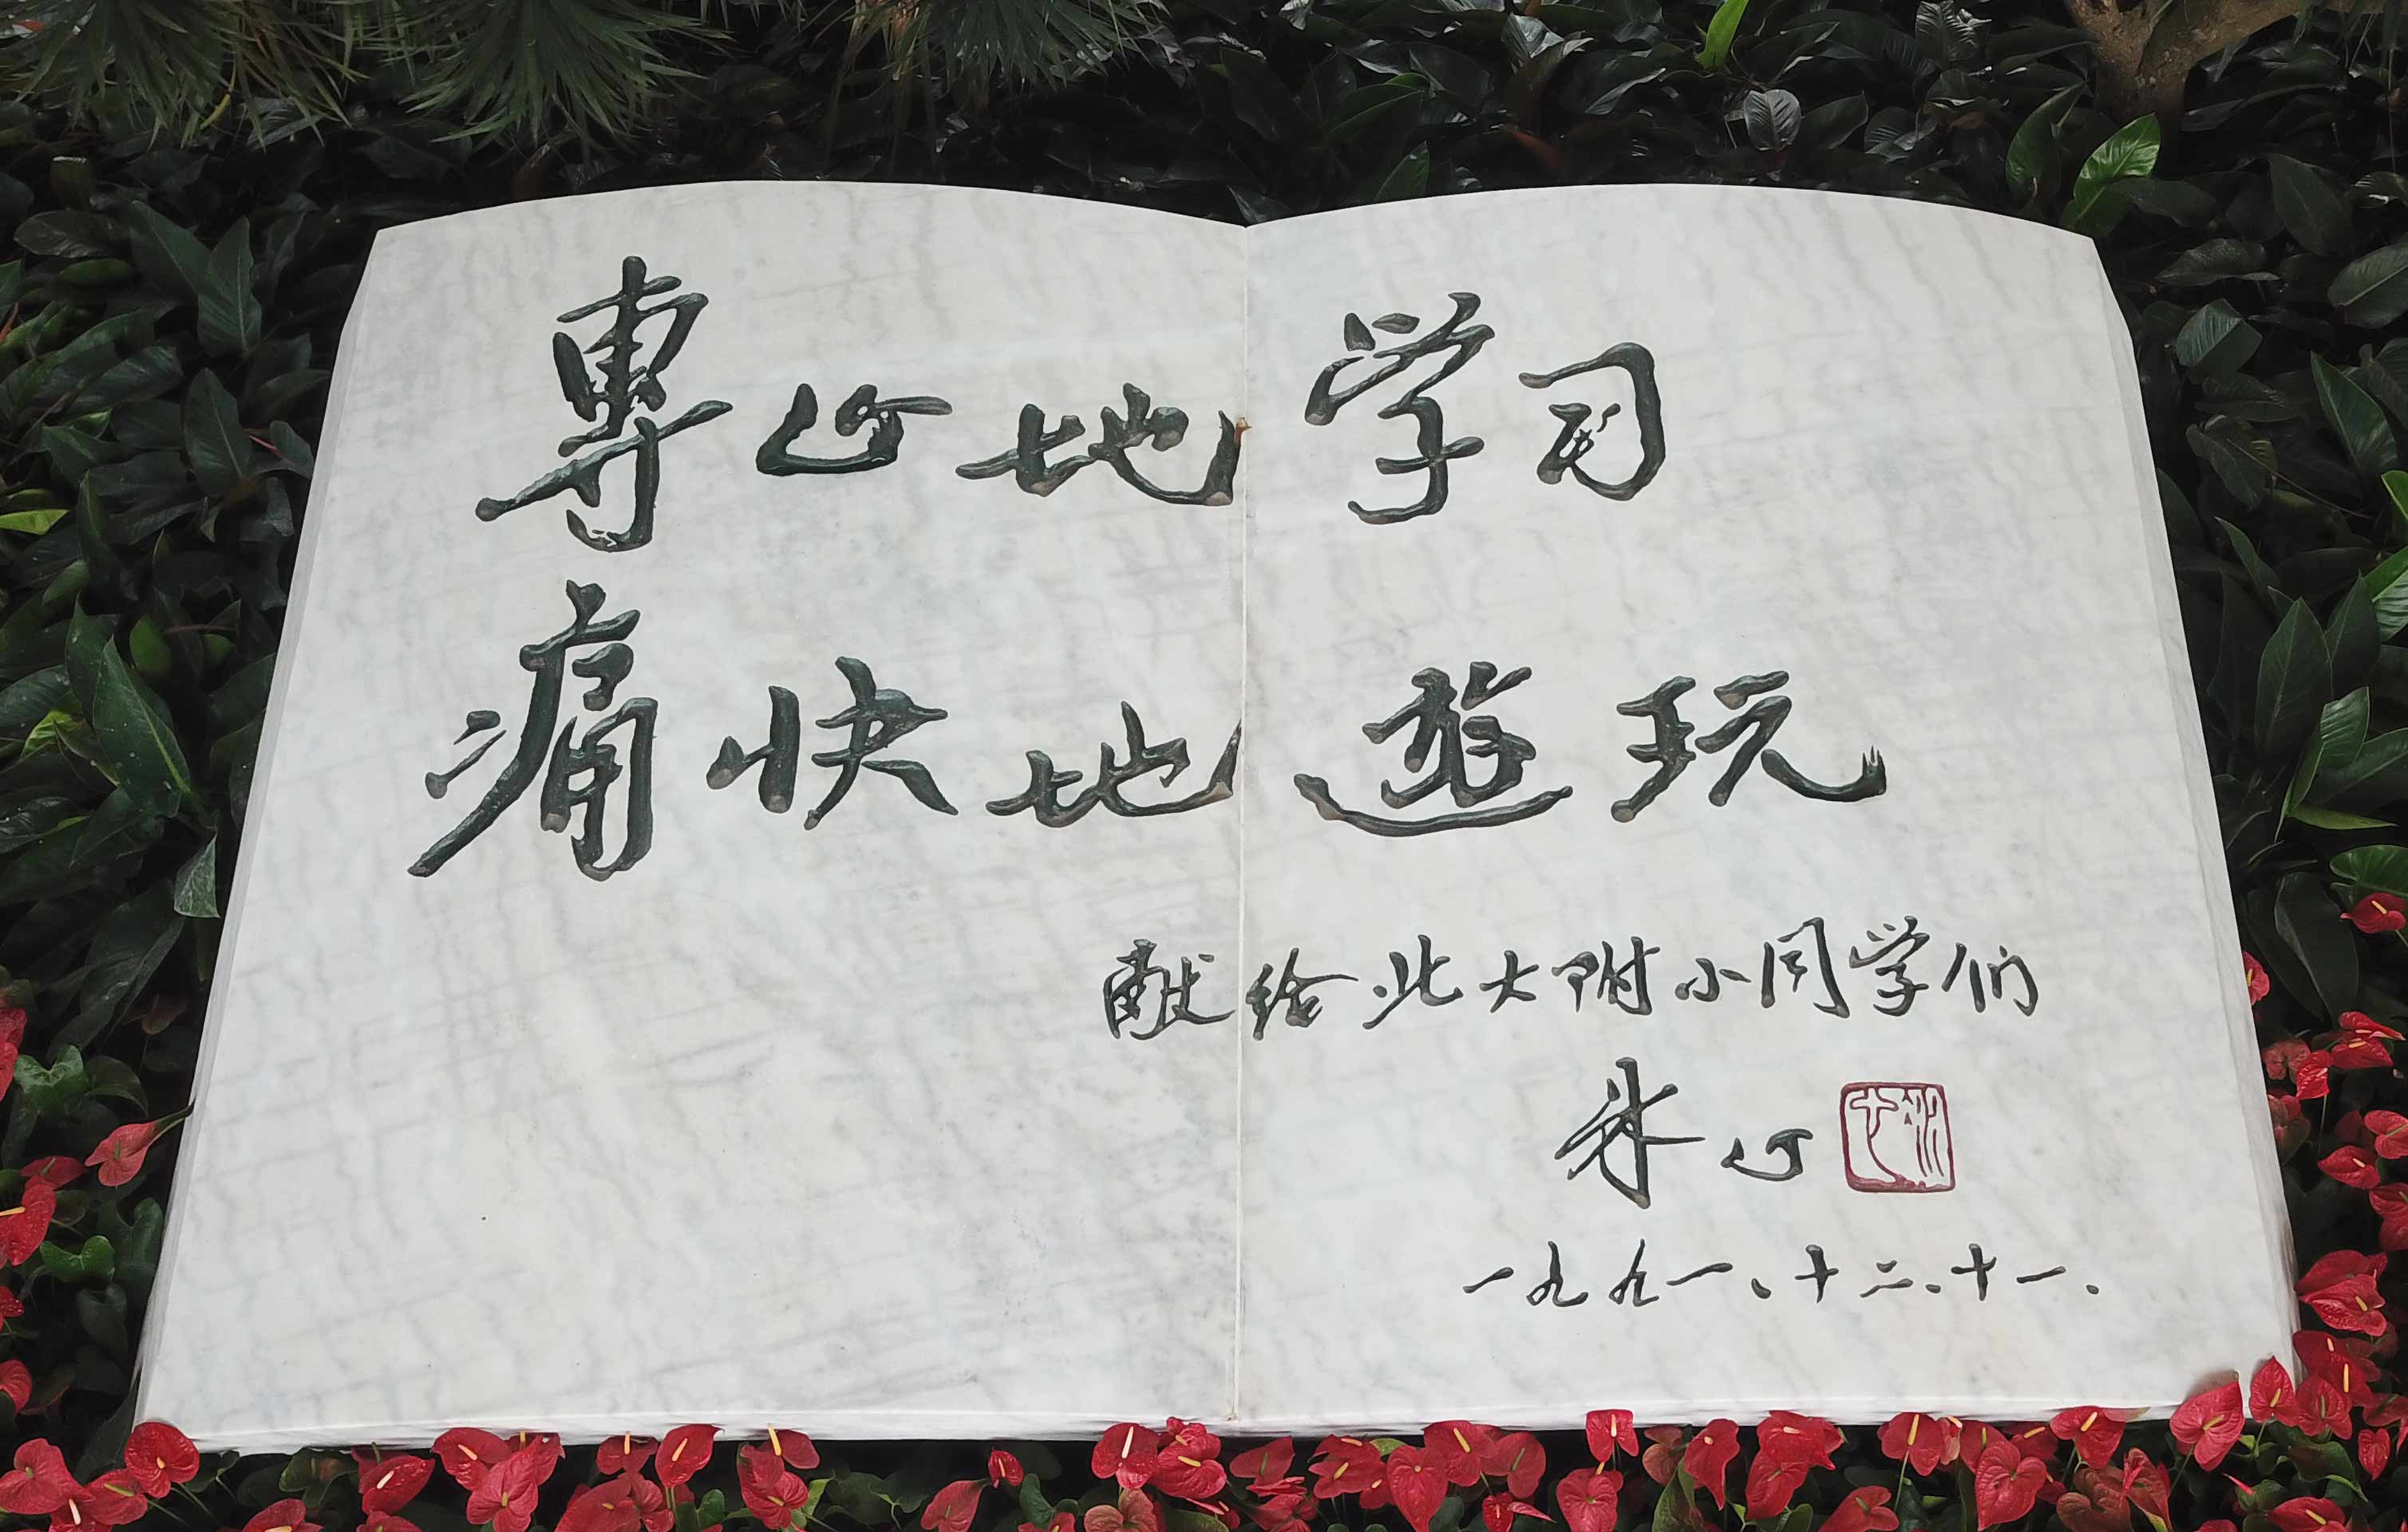 專心地学习
痛快地遊玩
献给北大附小同学们
冰心
一九九一、十二、十一.